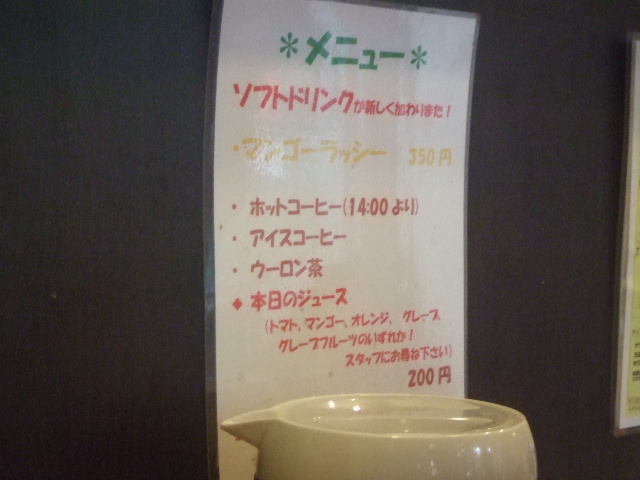 ＊メニュー＊
ソフトドリンクが新しく加わりまた！
・マンゴーラッシー 350円
・ホットコーヒー(14:00より)
・アイスコーヒー
・ウーロン茶
◆本日のジュース
(トマト、マンゴー、オレンジ、グレープ、
グレープフルーツのいずれか！
スタッフにお尋ね下さい)
200円